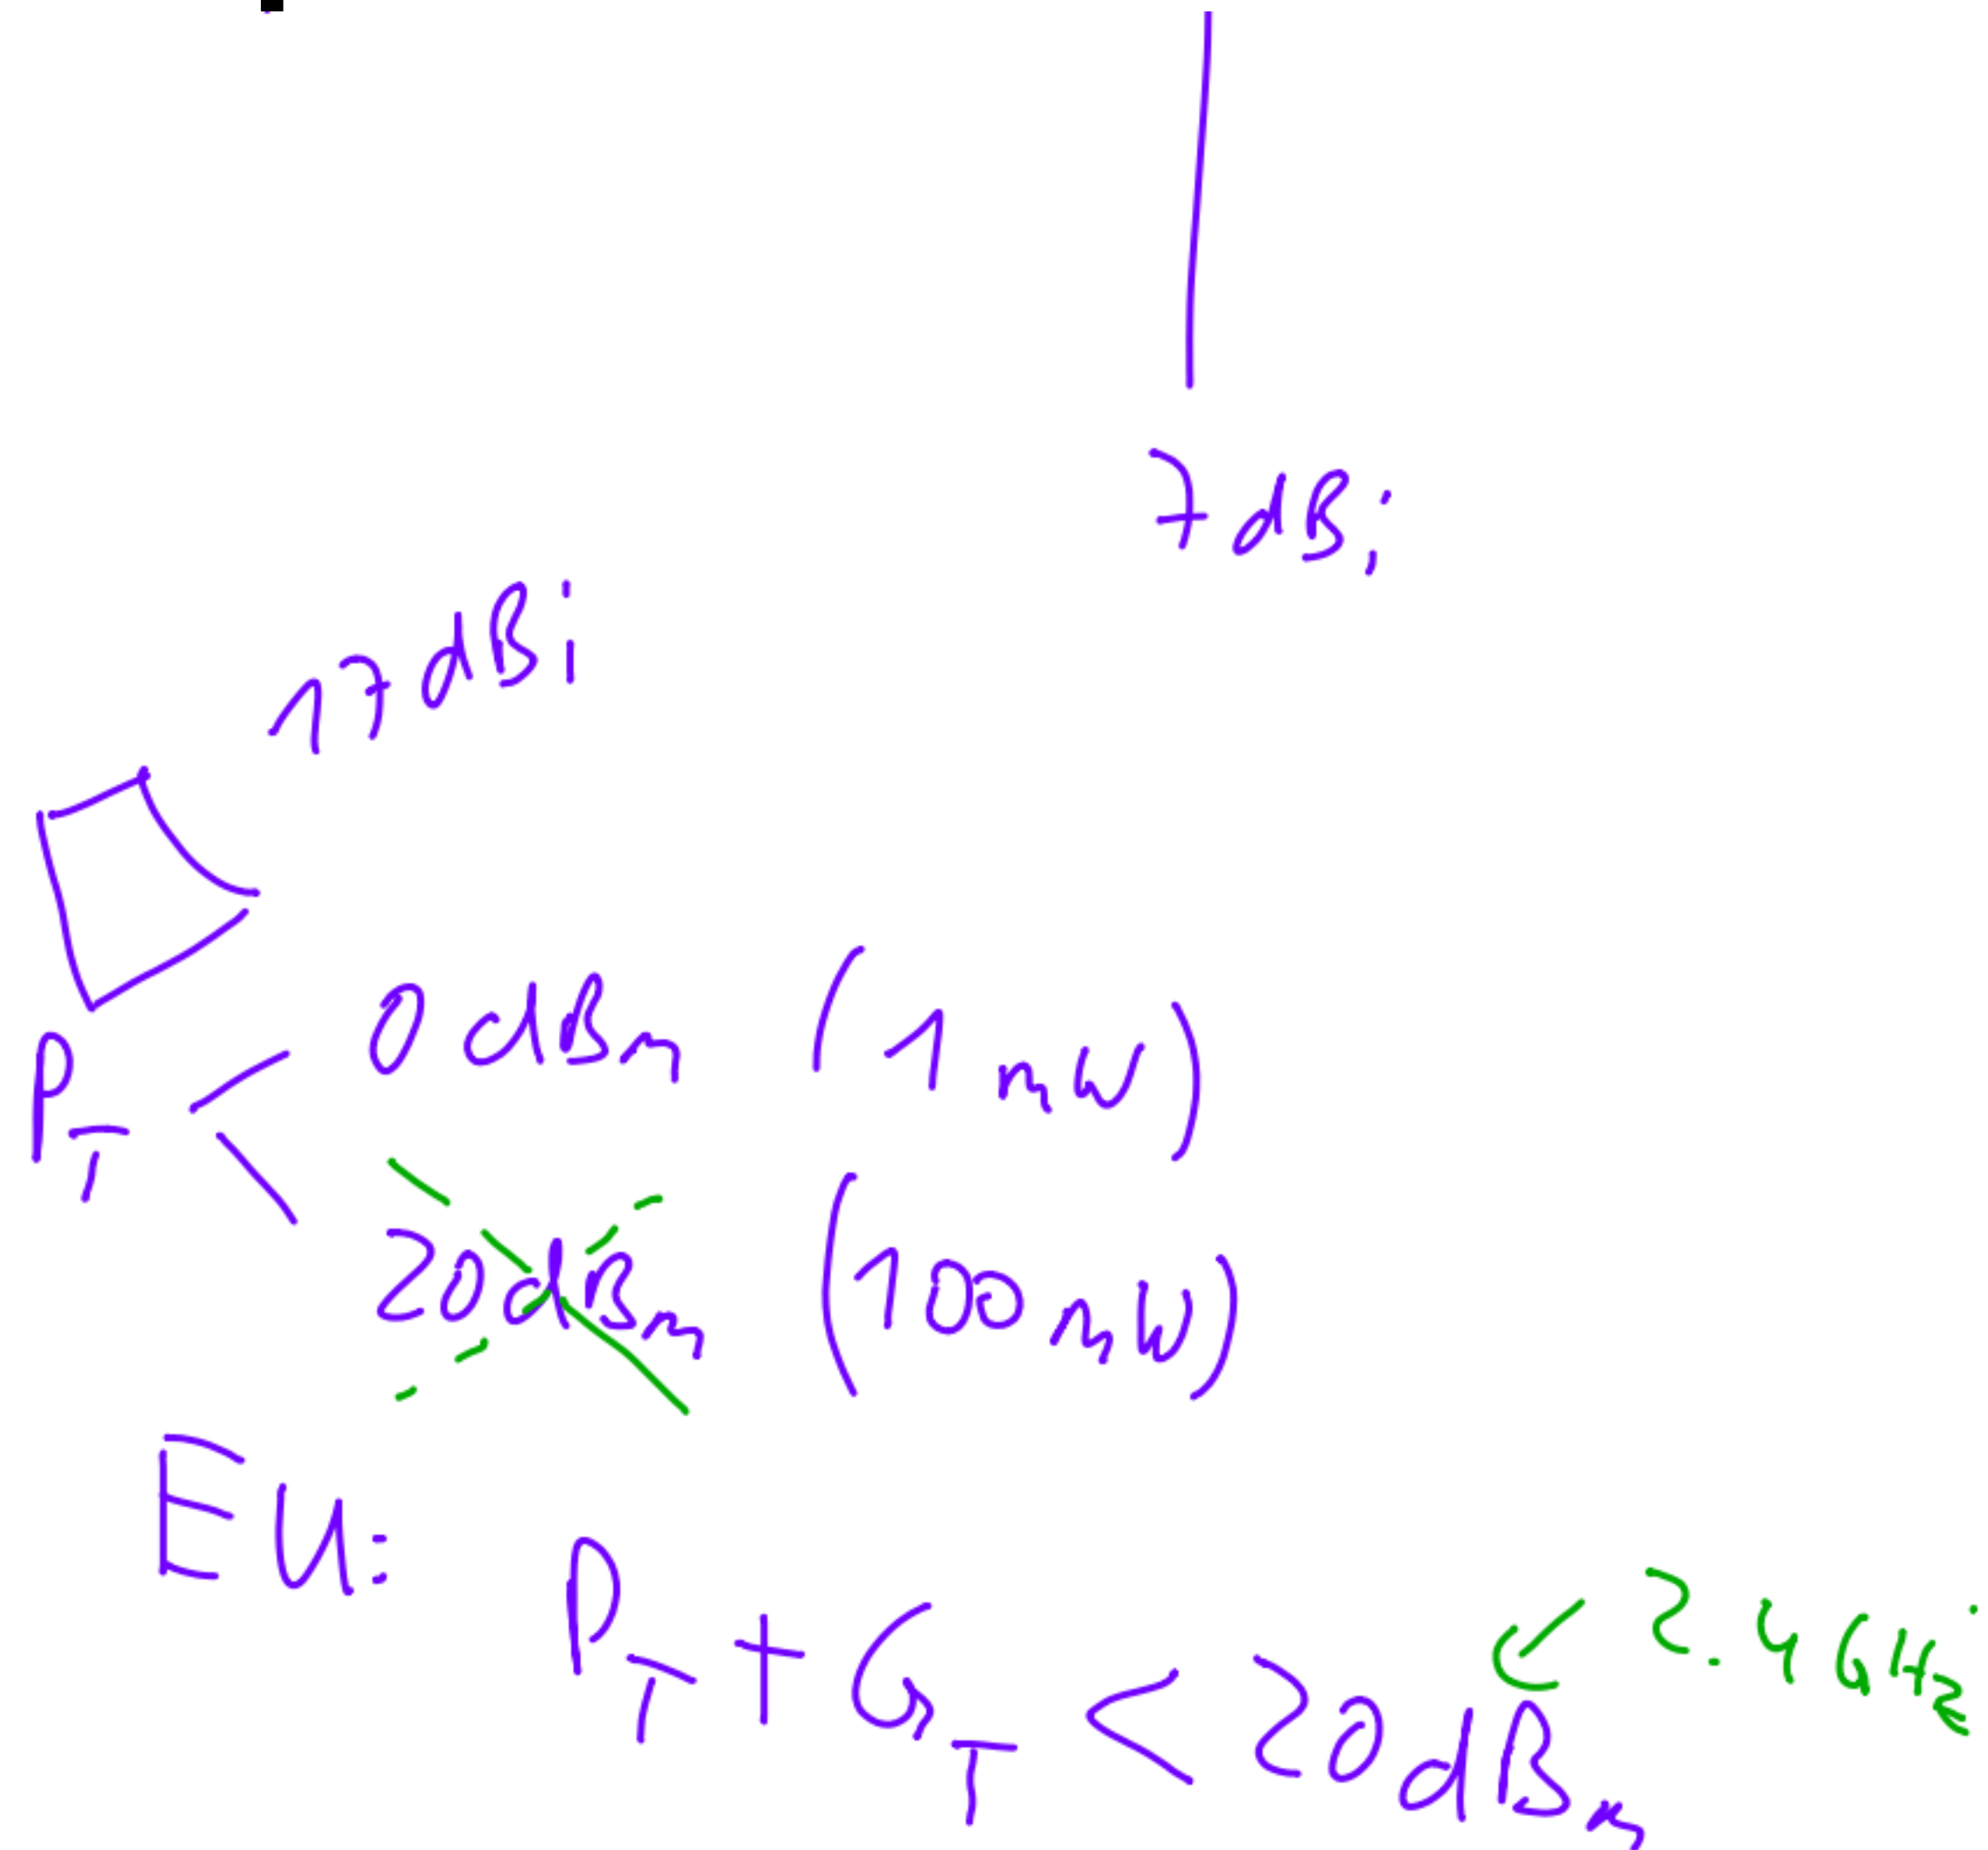 7 dBi
17 dBi
P_T < 0 dBm (1 mW)
20 dBm (100 mW)
EU:
P_T + G_T < 20 dBm ↙ 2.4 GHz